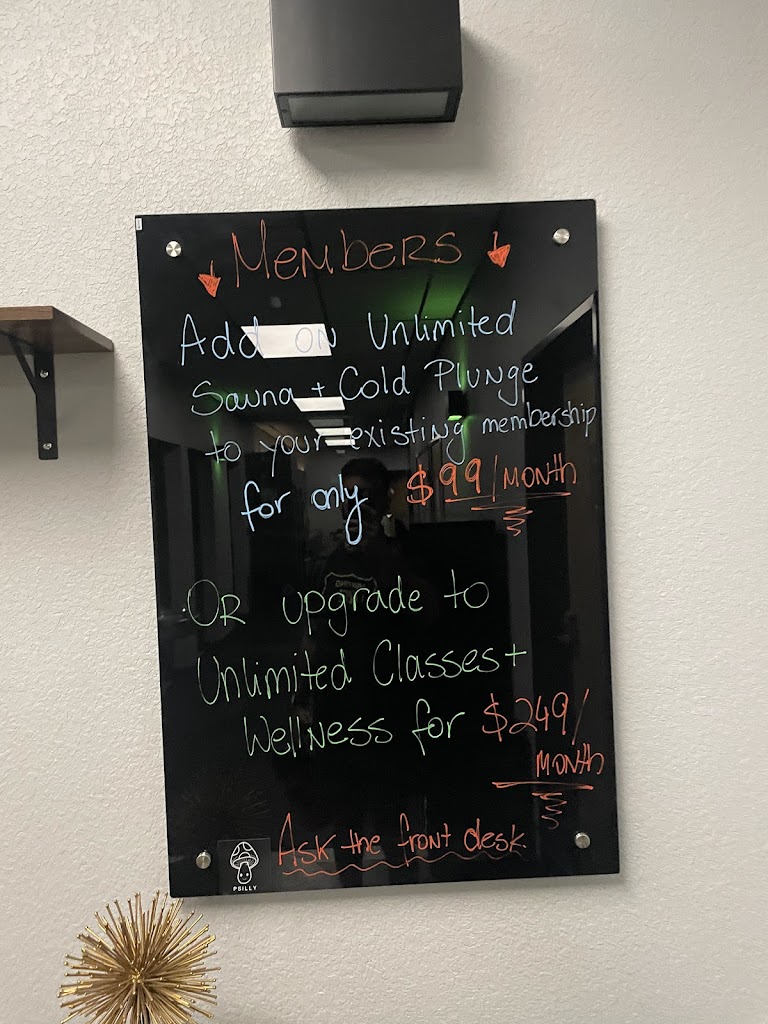 Members
Add on Unlimited
Sauna + Cold Plunge
to your existing membership
for only $99/month
Or upgrade to
Unlimited Classes +
Wellness for $249/
month
Ask the front desk
PSILLY